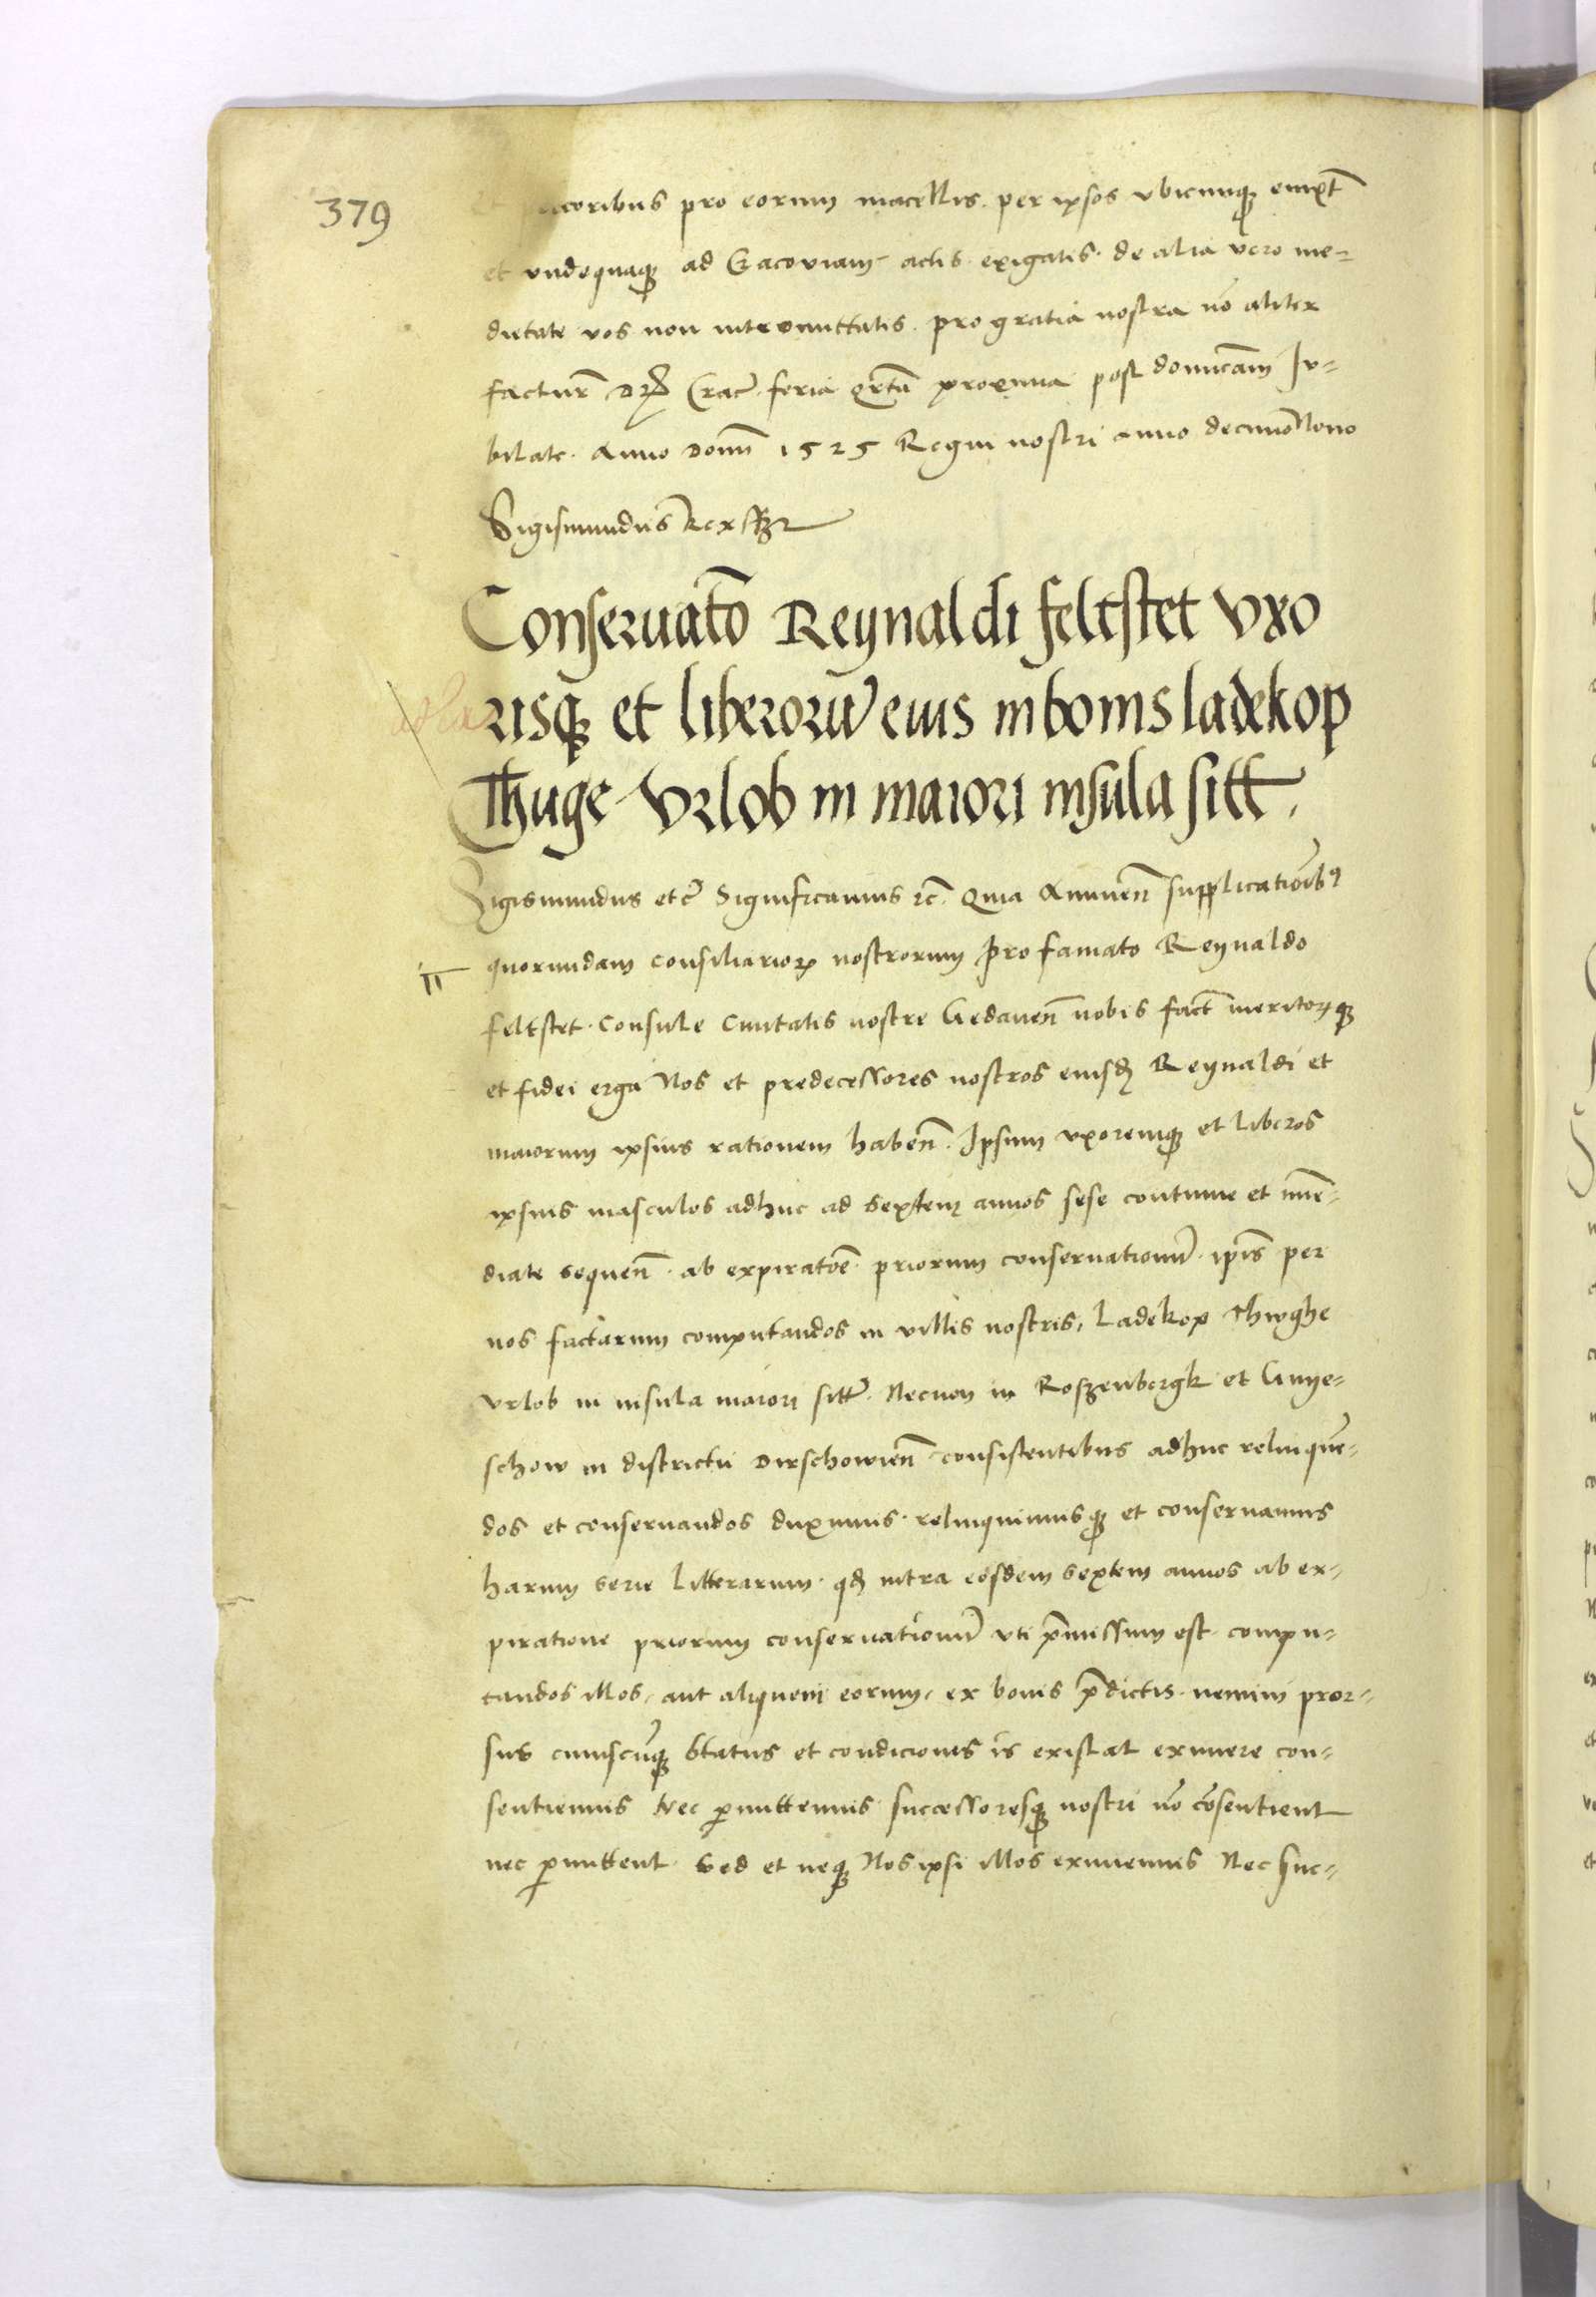 379
pro eorum macellis. per ipsos vbicunq̨ empt̄
et vndequaq̨ ad Cracoviam actis exigatis. de alia vero me-
dietate vos non intromittatis. pro gratia nostra nō aliter
factur̄ Dat̄ Crac̄ feria qrta proxima post domicam̄ Iv-
bilate. Anno Domī 1525 Regni nostri anno decimo Nono
Sigismundus Rex sst
Conseruato Reynaldi feltstet vxo
risq̨ et liberoru eius in bonis ladekop
Thuge Vrlob in maiori insula sitt.
Sigismundus etc̄ Significamus ꝛc̄. Quia Annuen̄ supplicationib9
quorundam consiliarioꝝ nostrorum pro famato Reynaldo
feltstet. Consule Ciuitatis nostre Gedanen̄ nobis fact̄ meritoꝝq̨
et fidei erga Nos et predecessores nostros eiusd̄ Reynaldi et
maiorum ipsius rationem haben̄. Ipsum vxoremq̨ et liberos
ipsius masculos adhuc ad septem annos sese continue et imē-
diate sequen̄. ab expiratōe. priorum conseruationū ip̄is per
nos factarum computandos in villis nostris, Ladekop Thwghe
Vrlob in insula maiori sitt̄. Necnon in Roszenbergk et Gnye-
schow in districtu Dirschowien̄ consistentibus adhuc relinquē-
dos et conseruandos duximus. relinquimusq̨ et conseruamus
harum serie litterarum. qd̄ intra eosdem septem annos ab ex-
piratione priorum conseruationū vti p̄missum est. compu-
tandos illos, aut aliquem eorum, ex bonis p̄dictis. nemini pror-
sus cuiuscūq̨ status et condicionis is existat eximere con-
sentiemus Nec ꝑmittemus successoresq̨ nostri nō cōsentient
nec ꝑmittent. Sed et neq̨ Nos ipsi illos eximemus Nec suc-